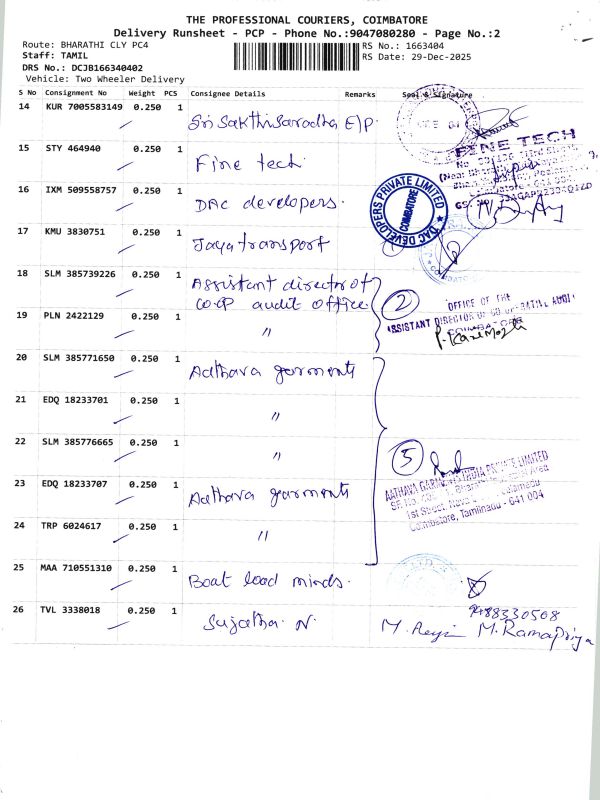 THE PROFESSIONAL COURIERS, COIMBATORE
Delivery Runsheet - PCP - Phone No.:9047080280 - Page No.:2
Route: BHARATHI CLY PC4
Staff: TAMIL
DRS No.: DCJB166340402
Vehicle: Two Wheeler Delivery
RS No.: 1663404
RS Date: 29-Dec-2025
S No Consignment No Weight PCS Consignee Details Remarks Seal & Signature
14 KUR 7005583149 0.250 1 Sri Sakthi Saradha E/P.
15 STY 464940 0.250 1 Fine tech
FINE TECH
16 IXM 509558757 0.250 1 DAC developers.
DAC DEVELOPERS PRIVATE LIMITED
COIMBATORE
17 KMU 3830751 0.250 1 Jaya transport
18 SLM 385739226 0.250 1 Assistant director of
CO-OP audit office
2
OFFICE OF THE
ASSISTANT DIRECTOR OF CO-OPERATIVE AUDIT
COIMBATORE
19 PLN 2422129 0.250 1 〃
20 SLM 385771650 0.250 1 Aathava garments
21 EDQ 18233701 0.250 1 〃
22 SLM 385776665 0.250 1 〃
5
AATHAVA GARMENTS INDIA PRIVATE LIMITED
1st Street,
Coimbatore, Tamilnadu - 641 004
23 EDQ 18233707 0.250 1 Aathava garments
24 TRP 6024617 0.250 1 〃
25 MAA 710551310 0.250 1 Boat load minds.
26 TVL 3338018 0.250 1 Sujatha. N.
9488330508
M. M. Ramapriya